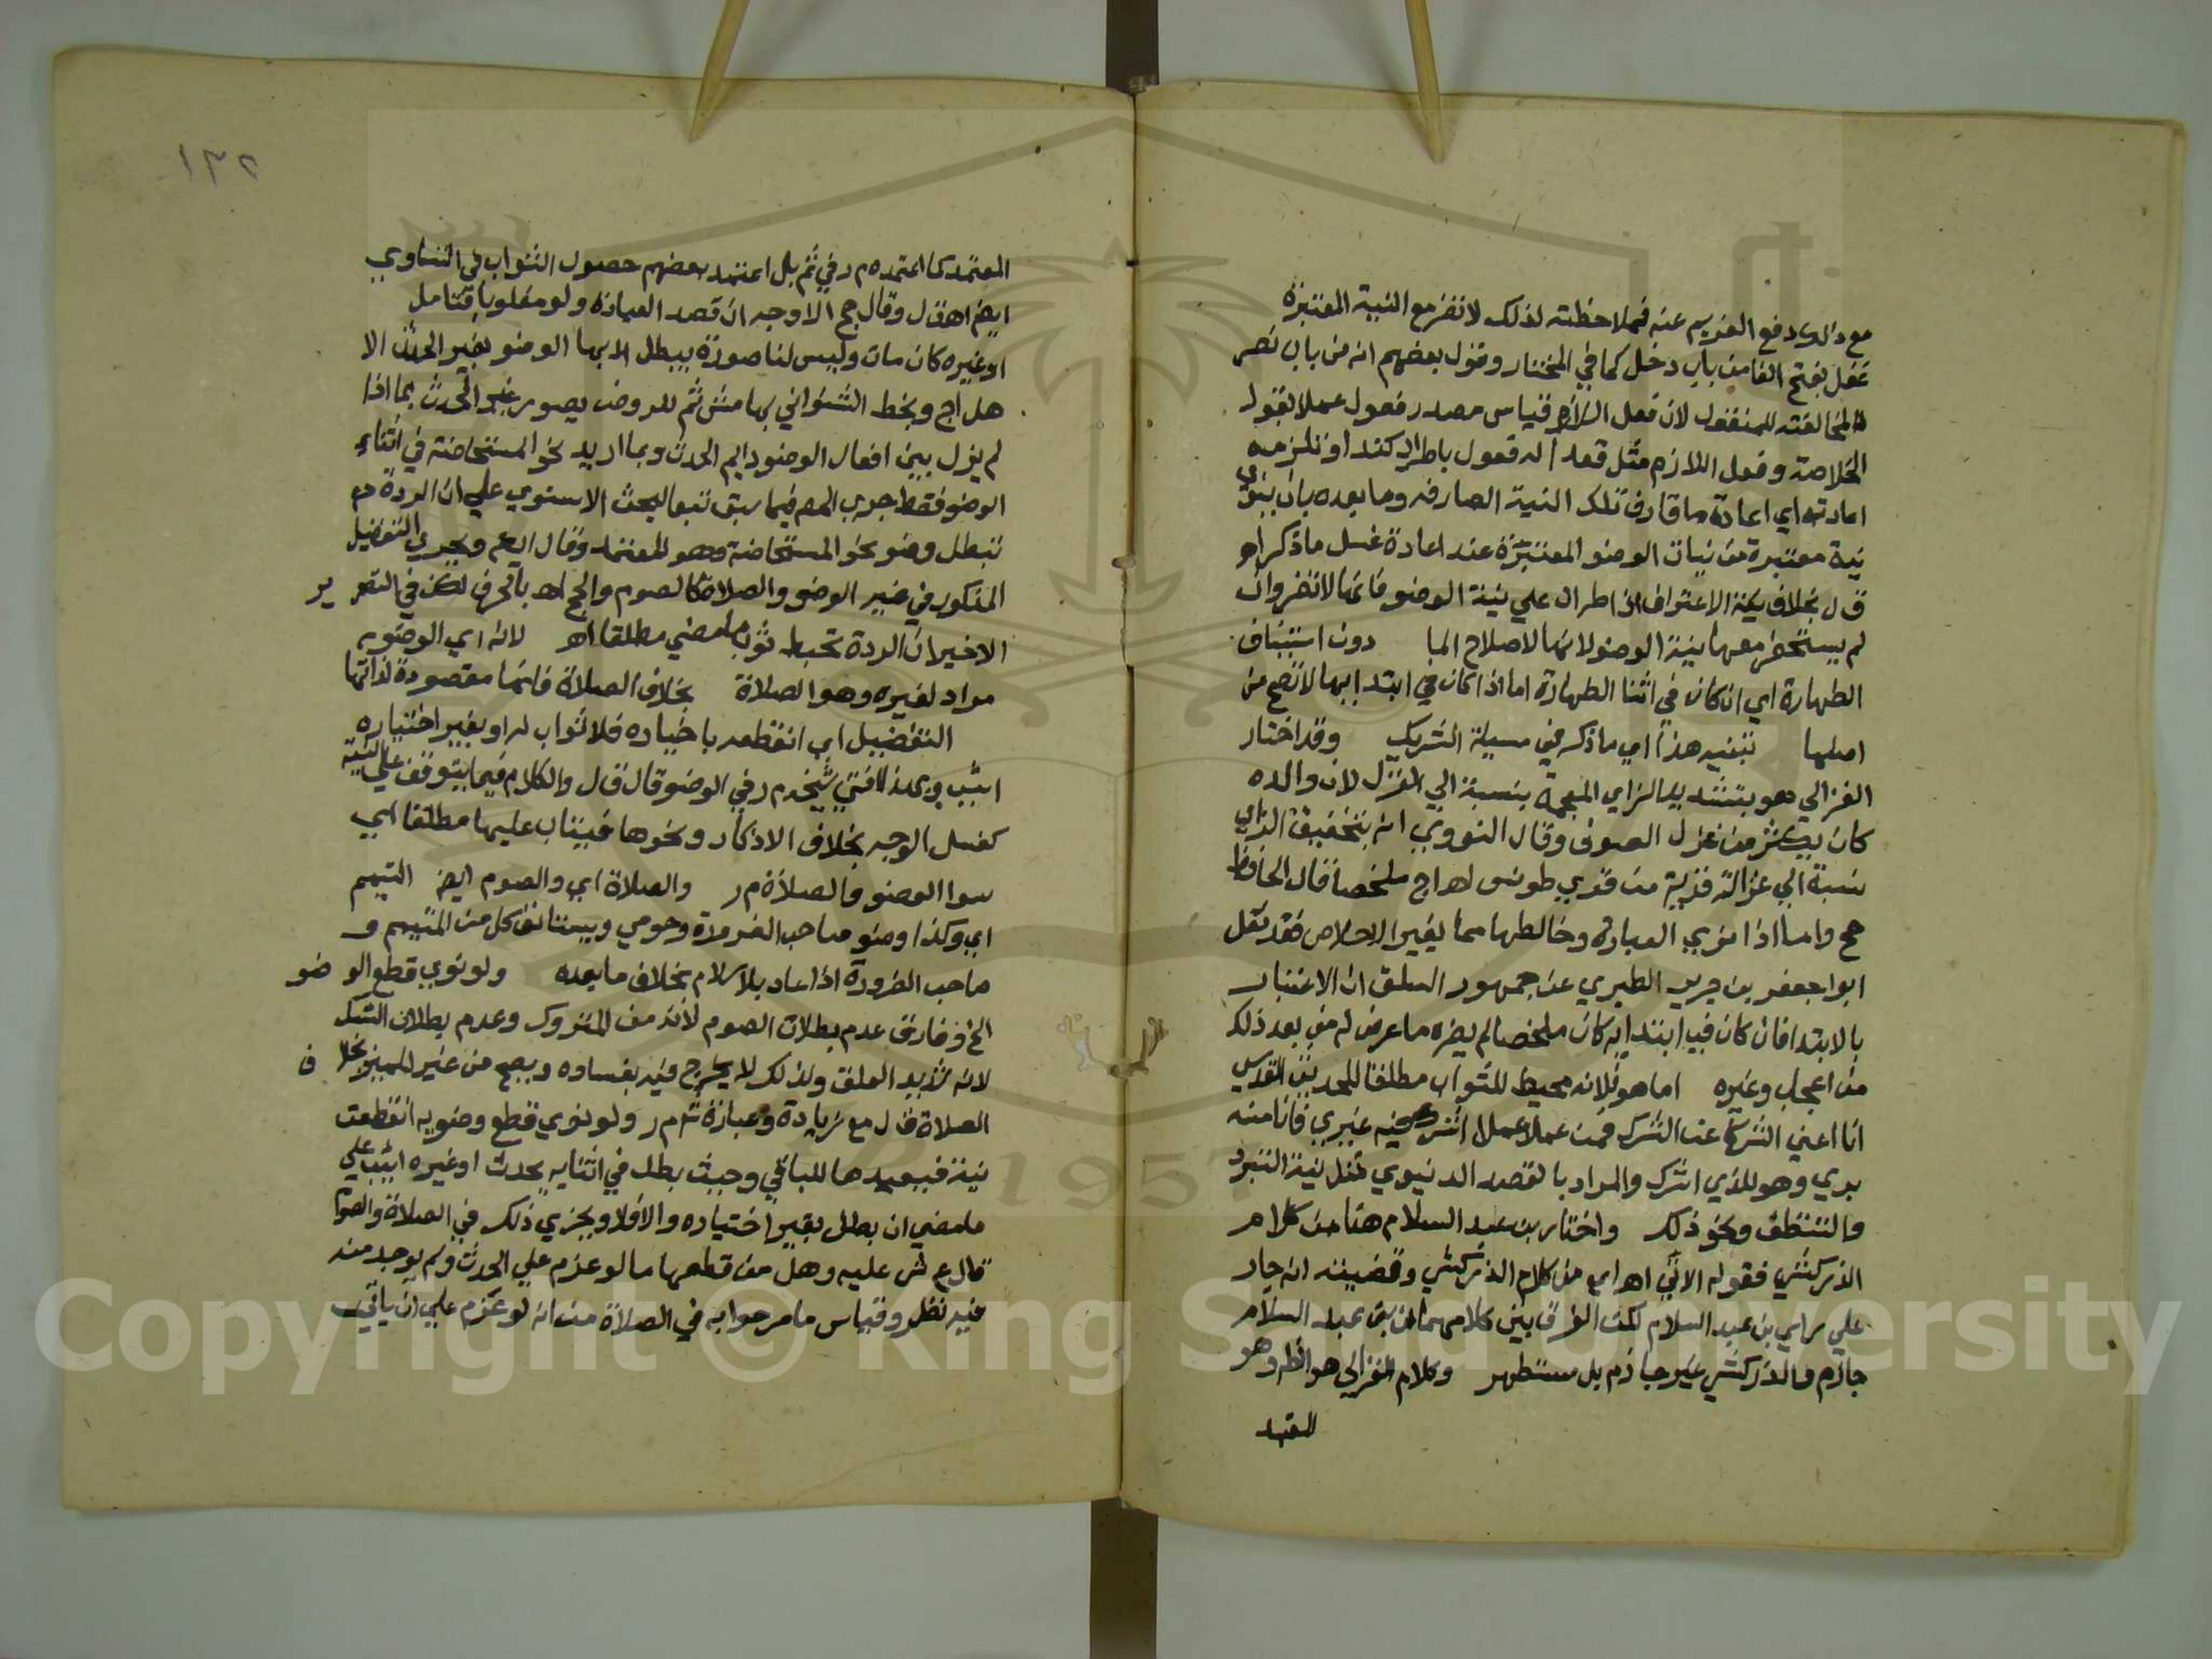 مع ذلك دفع الغريم عنه فملاحظته لذلك لا تضر مع النية المعتبرة
غفل بفتح الفا من باب دخل كما في المختار وقول بعضهم انه من باب نصر
لمخالفته للمنقول لان فعل اللازم قياس مصدر فعول عملا بقول
الخلاصة وفعل اللازم مثل قعدا له فعول باطراد كغدا او نلزمه
اعادته اي اعادة ما قارف تلك النية الصارفه وما بعده بان ينوي
نية معتبرة من نيات الوضو المعتبرة عند اعادة غسل ما ذكر اهـ
ق ل بخلاف نية الاغتراف اذا طرات علي نية الوضو فانها لا تضر وان
لم يستحضر معها نية الوضو لانها لاصلاح الما دون استيناف
الطهارة اي ان كان في اثنا الطهارة اما اذا كان في ابتدايها لا تصح من
اصلها تنبيه هذا اي ما ذكره في مسيلة التشريك وقد اختار
الغزالي هو بتشديد الزاي المعجمة بنسبة الي الغزل لان والده
كان يكثر من غزل الصوف وقال النووي انه بتخفيف الزاي
نسبة الي غزالة قرية من قري طوس اهـ اج ملخصا قال الحافظ
حج واما اذا نوي العبادة وخالطها مما يغير الاخلاص فقد نقل
ابوا جعفر بن جرير الطبري عن جمهور السلف ان الاعتبار
بالابتدا فان كان في ابتدايه كان ملخصا لم يضره ما عرض له من بعد ذلك
من اعجاب وغيره اما هو فلانه محيط للثواب مطلقا للحديث القدسي
انا اغني الشركا عن الشرك فمن عملا عملا اشرك فيه غيري فانا منه
بري وهو للذي اشرك والمراد بالقصد الدنيوي مثل نية التبرد
والتنظف ونحو ذلك واختار بن عبد السلام هنا من كلام
الزركشي فقوله الاتي اهـ اي من كلام الزركشي وقضيته انه جار
علي راي بن عبد السلام لكن الفرق بين كلامهما ان بن عبد السلام
جازم والزركشي غير جازم بل مستظهر وكلام الغزالي هو الظه وهو
المعتمد
١٣٢
المعتمد كما اعتمده م ر في ثم بل اعتمد بعضهم حصول الثواب في التساوي
ايضا اهـ ق ل وقال حج الاوجه ان قصد العبادة ولو مغلوبا فتامل
او غيره كان مات وليس لنا صورة يبطل الا بها الوضو بغير الحدث الا
هل اج وبخط الشنواني بهامش ثم للروض يصور غير الحدث بما اذا
لم يزل بين افعال الوضو دايم الحدث وبما اريد نحو المستحاضة في اثناء
الوضو فقط جري المص فيما سبق تبعا لبحث الاسنوي علي ان الردة
تبطل وضو نحو المستحاضة وهو المعتمد وقال ايعم ويجري التفضيل
المذكور في غير الوضو والصلاة كالصوم والحج اهـ بالحرف لكن في التقرير
الاخير ان الردة تحبط ثواب ما مضي مطلقا اهـ لانه اي الوضويه
مراد لغيره وهو الصلاة بخلاف الصلاة فانها مقصودة لذاتها
التفضيل اي ان قطعه باختياره فلا ثواب له او بغير اختياره
اثيب وبهذا افتي شيخه م ر في الوضو قال ق ل والكلام فيما يتوقف علي النية
كغسل الوجه بخلاف الاذكار ونحوها فيثاب عليها مطلقا اي
سوا الوضو والصلاة م ر والصلاة اي والصوم ايضا التيمم
اي وكذا وضو صاحب الضرورة وحومي ويستانف كل من المتيمم و
صاحب الضرورة اذا عاد بلاسلام بخلاف ما بعده ولو نوي قطع الوضو
الخ وفارق عدم بطلان الصوم لانه من المتروك وعدم بطلان النسك
لانه شديد العلق ولذلك لا يخرج منه بفساده ويصح من غير المميز بخلاف
الصلاة ق ل مع زيادة وعبارة ش م ر ولو نوي قطع وضويه انقطعت
نيته فيعيدها للباقي وحيث بطل في اثنايه بحدث او غيره اثيب علي
ما مضي ان بطل بغير اختياره والا فلا ويجزي ذلك في الصلاة والصوم
قال ع ش عليه وهل من قطعها ما لو عزم علي الحدث ولم يوجد منه
فيه نظر وقياس ما مر جوابه في الصلاة من انه لو عزم علي ان ياتي
Copyright © King Saud University
1957